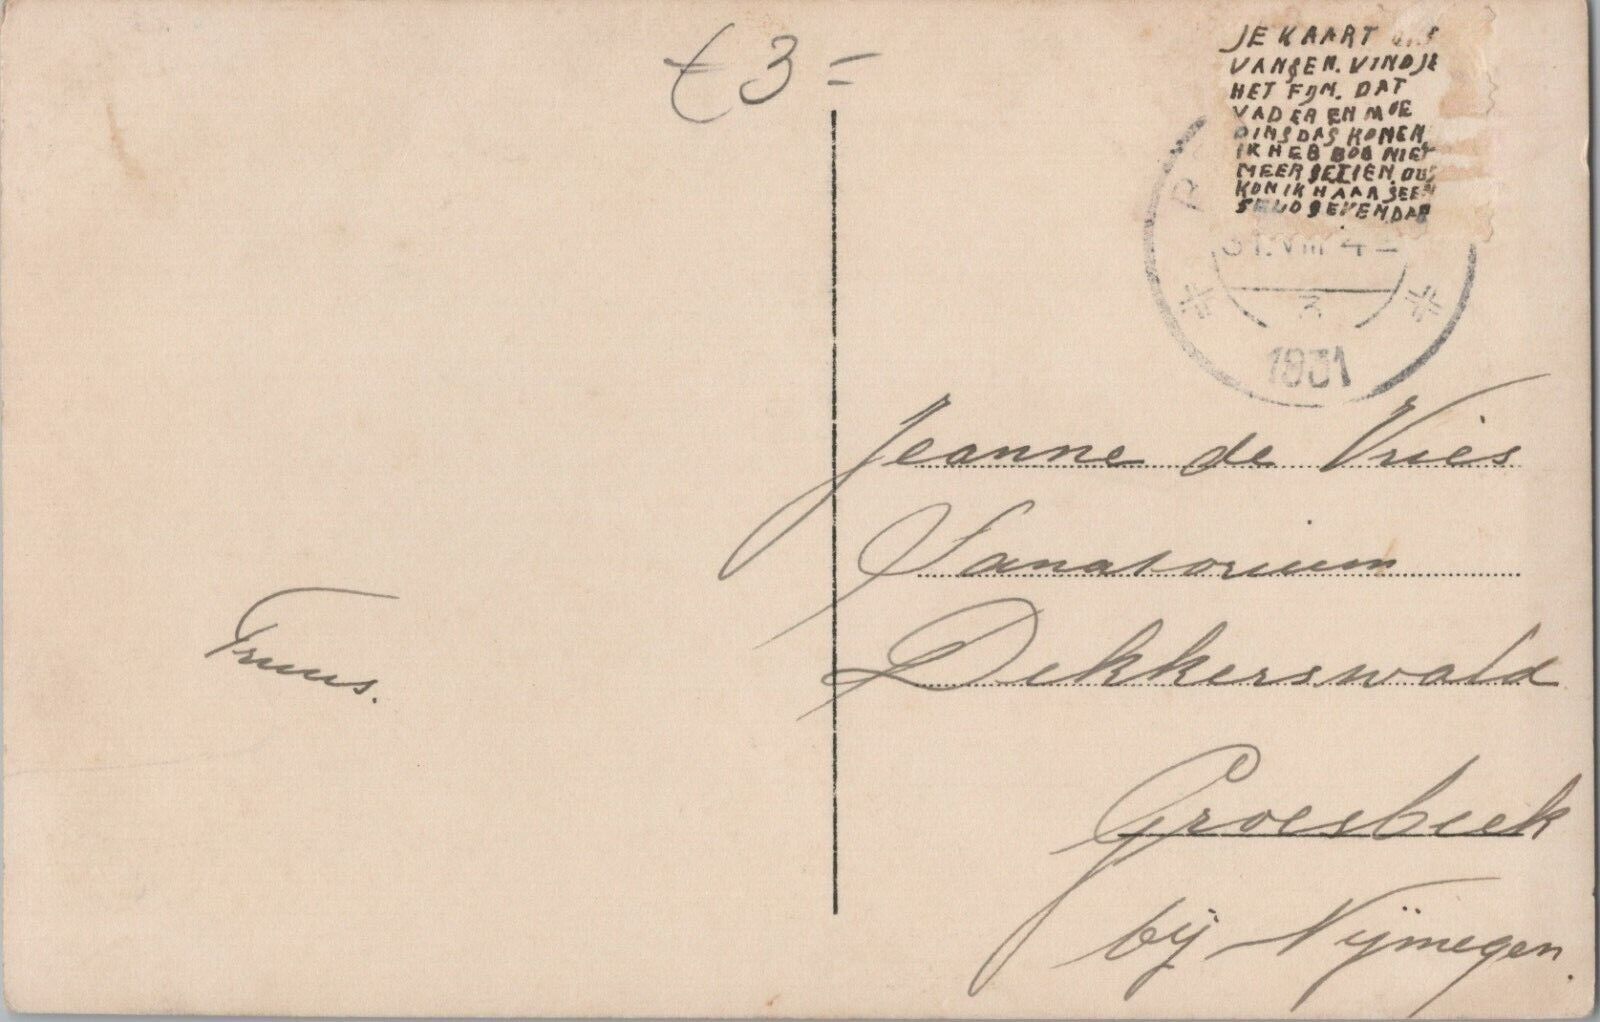 € 3 =
JE KAART ONT
VANGEN. VIND JE
HET FIJN. DAT
VADER EN MOE
DINSDAG KOMEN
IK HEB BOB NIET
MEER GEZIEN, DUS
KON IK HAAR GEEN
GELD GEVEN DAG
31.VIII 4
3
1931
Jeanne de Vries
Sanatorium
Dekkerswald
Groesbeek
bij Nijmegen.
Truus.